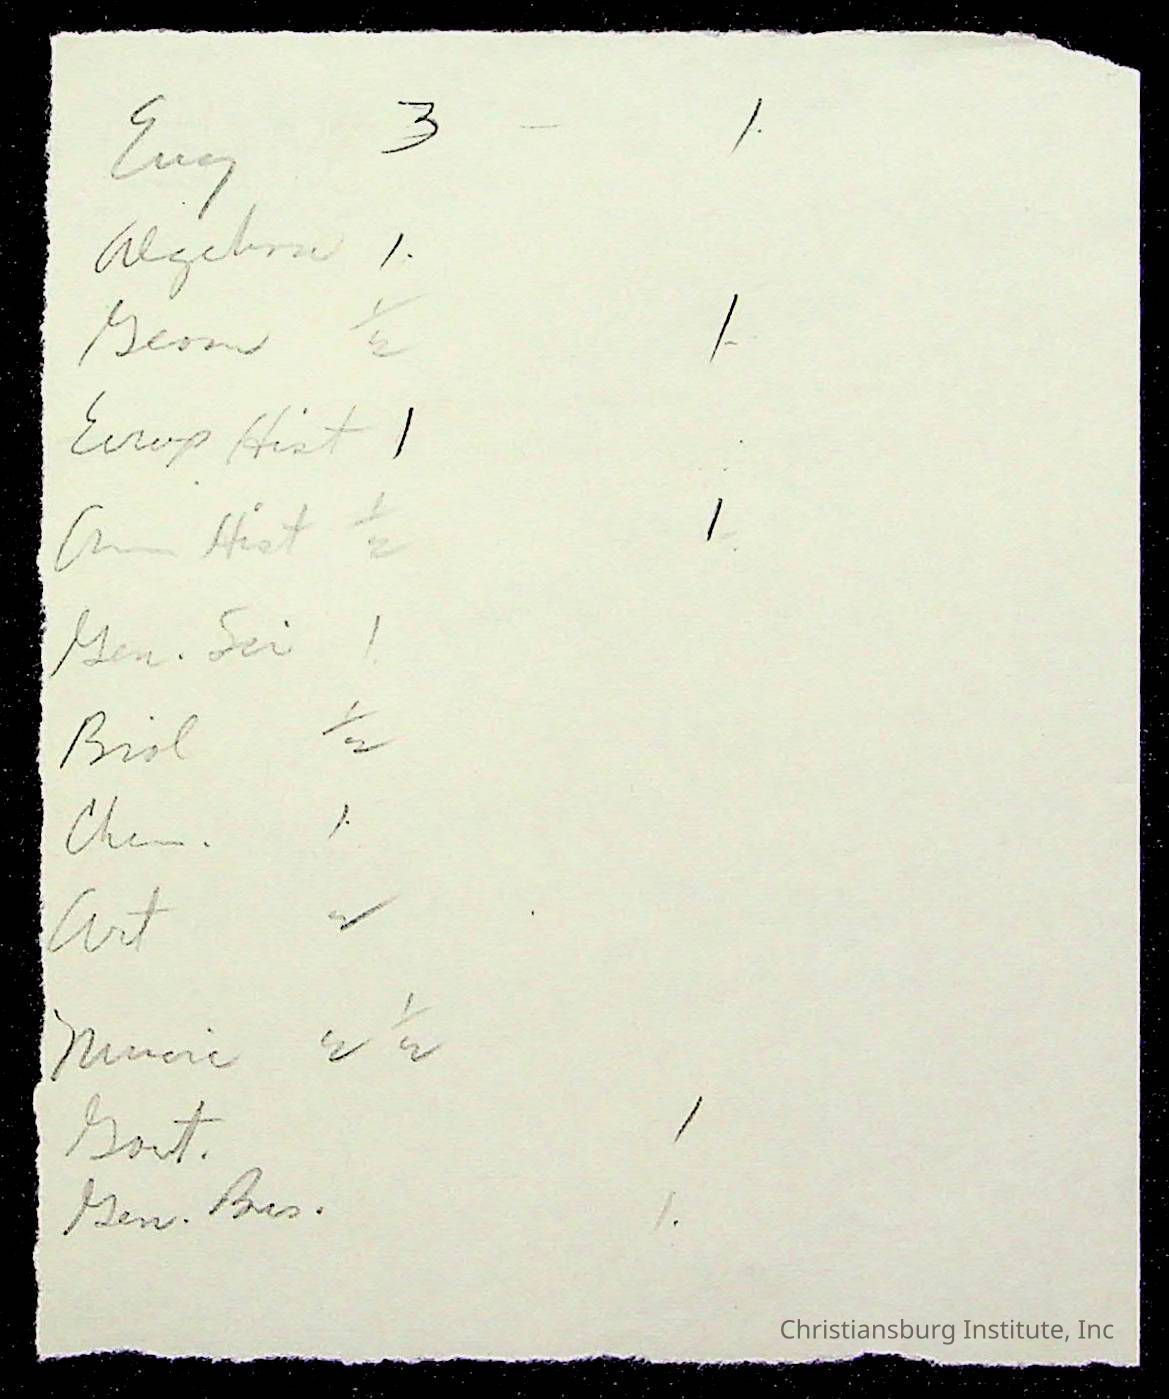 Eng 3 - 1.
Algebra 1.
Geom 1/2 1.
Europ Hist 1
Am Hist 1/2 1.
Gen. Sci 1
Biol 1/2
Chem. 1.
Art
Music 1/2
Govt. 1
Gen. Bus. 1.
Christiansburg Institute, Inc